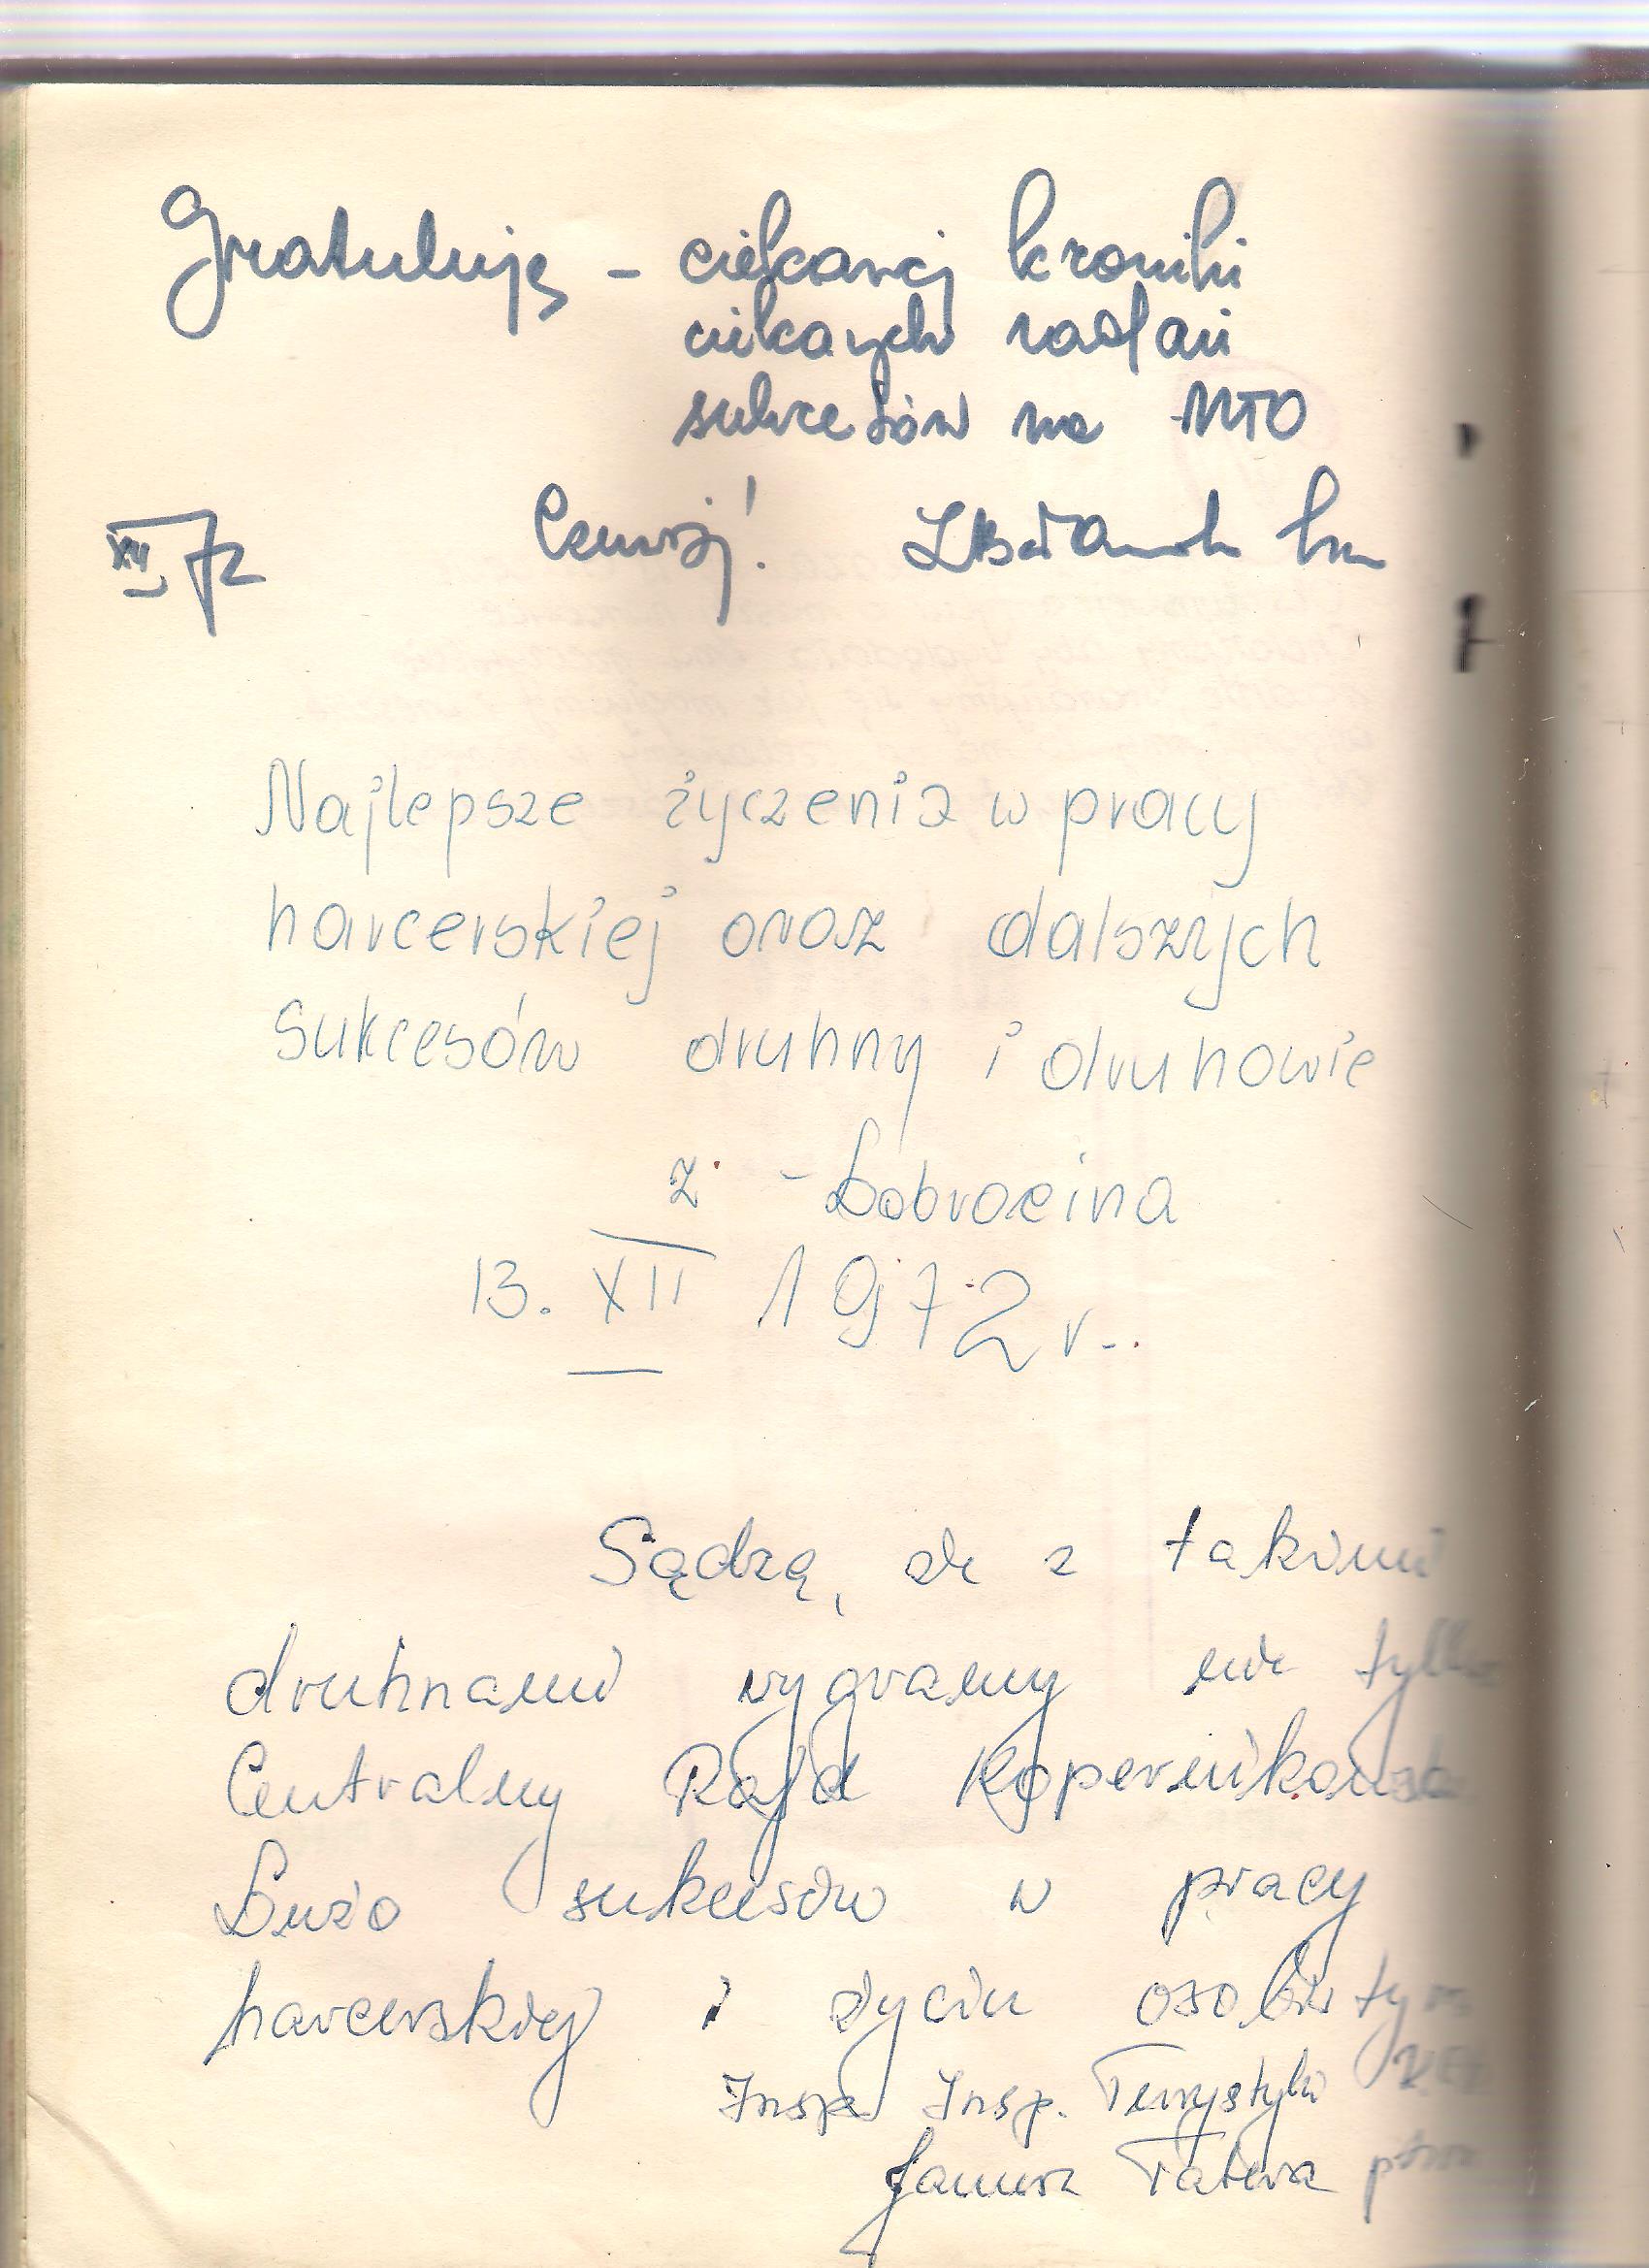 Gratuluję - ciekawej kroniki
ciekawych zadań
sukcesów na NTO
Czuwaj!
XII 72
Najlepsze życzenia w pracy
harcerskiej oraz dalszych
sukcesów druhny i druhowie
z - Dobrocina
13. XII 1972 r.
Sądzą, że z takimi
druhnami wygramy nie tylko
Centralny Rajd
Dużo sukcesów w pracy
harcerskiej i życiu osobistym
Insp. Insp. Turystyki
Janusz